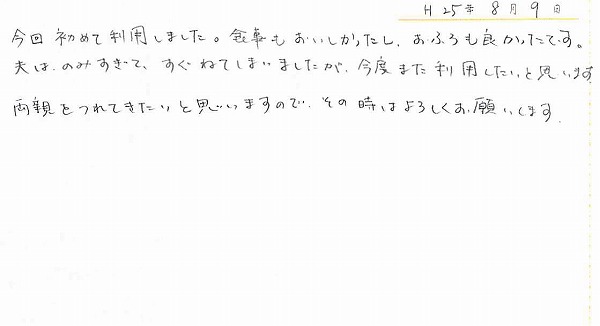 H25年8月9日
今回初めて利用しました。食事もおいしかったし、おふろも良かったです。
夫は、のみすぎて、すぐねてしまいましたが、今度また利用したいと思います
両親をつれてきたいと思いますので、その時はよろしくお願いします。